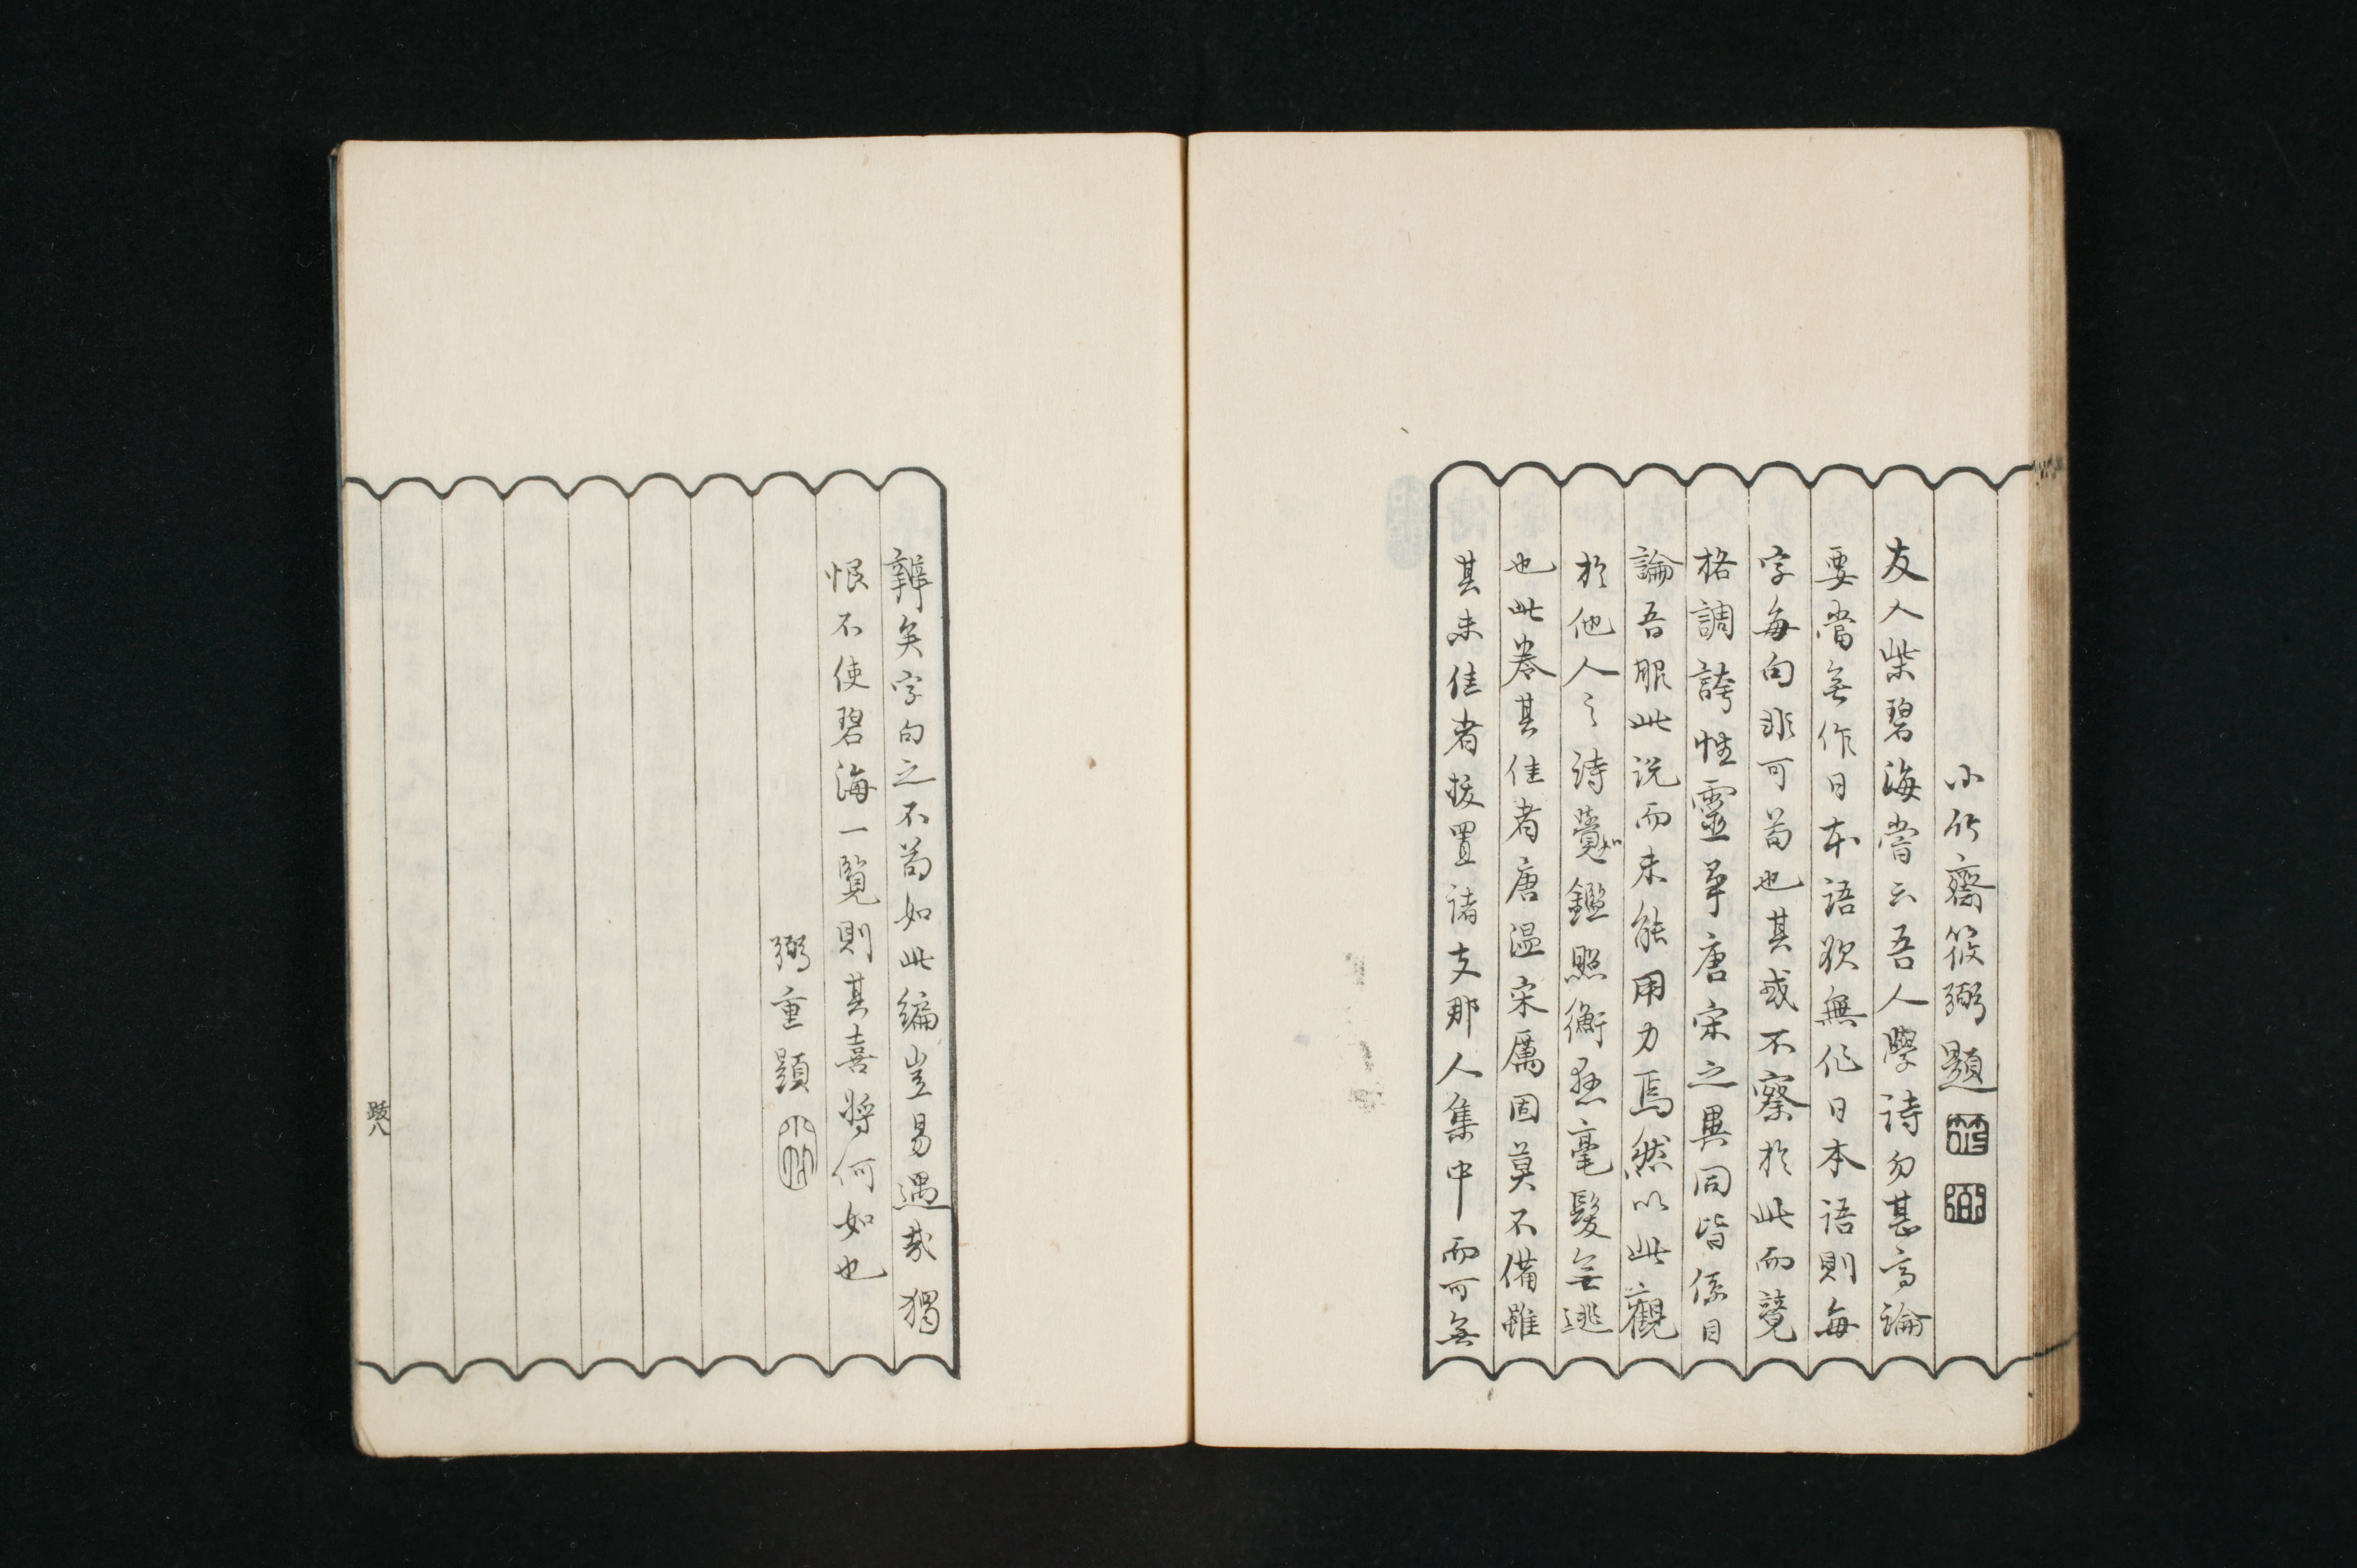 小竹齋筱弼題
友人柴碧海嘗云吾人學詩勿甚高論
要當无作日本語欲無作日本語則每
字每句非可苟也其或不察於此而競
格調誇性靈爭唐宋之異同皆係目
論吾服此説而未能用力焉然以此觀
於他人之詩覺鑑照衡懸毫髮无逃
也此卷其佳者唐温宋厲固莫不備雖
其未佳者拔置諸支那人集中而可无
辨矣字句之不苟如此編豈易遇哉獨
恨不使碧海一覽則其喜將何如也
弼重題
跋八